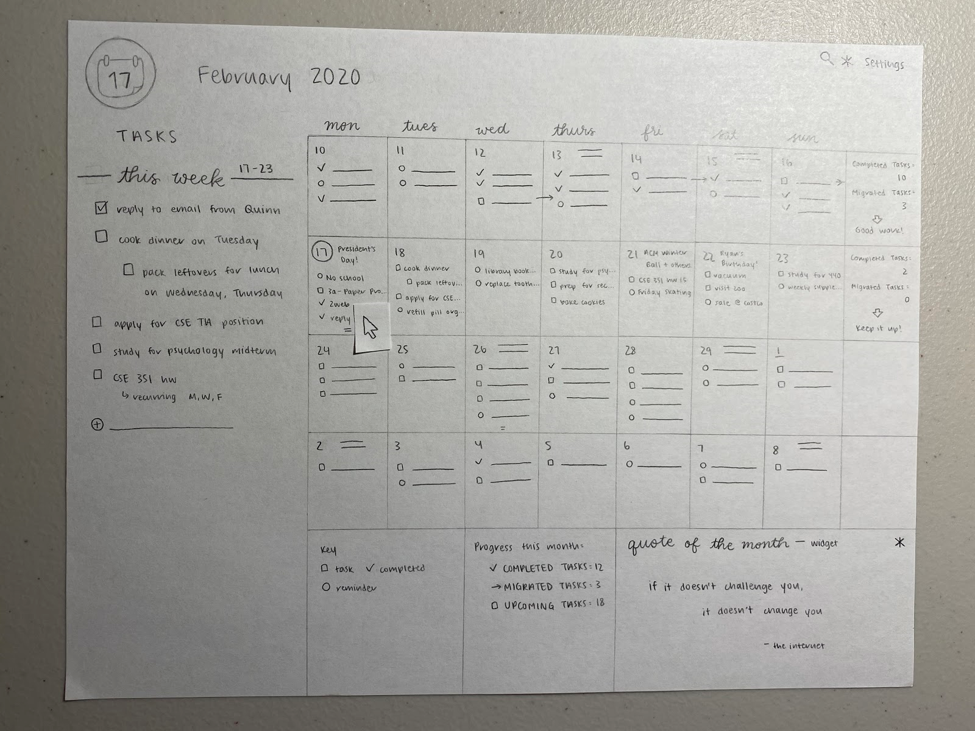 17
February 2020
Settings
TASKS
this week 17-23
reply to email from Quinn
cook dinner on Tuesday
pack leftovers for lunch
on Wednesday, Thursday
apply for CSE TA position
study for psychology midterm
CSE 351 hw
recurring M,W,F
mon tues wed thurs fri sat sun
10 11 12 13 14 15 16
Completed Tasks:
10
Migrated Tasks:
3
Good work!
17 President's
Day!
No school
2a-Paper Pro...
2web
reply
18
cook dinner
pack leftov...
apply for CSE...
refill pill org...
19
library book...
replace tooth...
20
study for psy...
prep for rec...
bake cookies
21 ACM Winter
Ball + others
CSE 351 hw 15
Friday skating
22 Ryan's
Birthday!
vacuum
visit
sale @ costco
23
study for 440
weekly supple...
Completed Tasks:
2
Migrated Tasks:
0
Keep it up!
24 25 26 27 28 29 1
2 3 4 5 6 7 8
Key
task ✓ completed
reminder
Progress this month:
✓ COMPLETED TASKS: 12
→ MIGRATED TASKS: 3
UPCOMING TASKS: 18
quote of the month — widget
if it doesn't challenge you,
it doesn't change you
- the internet